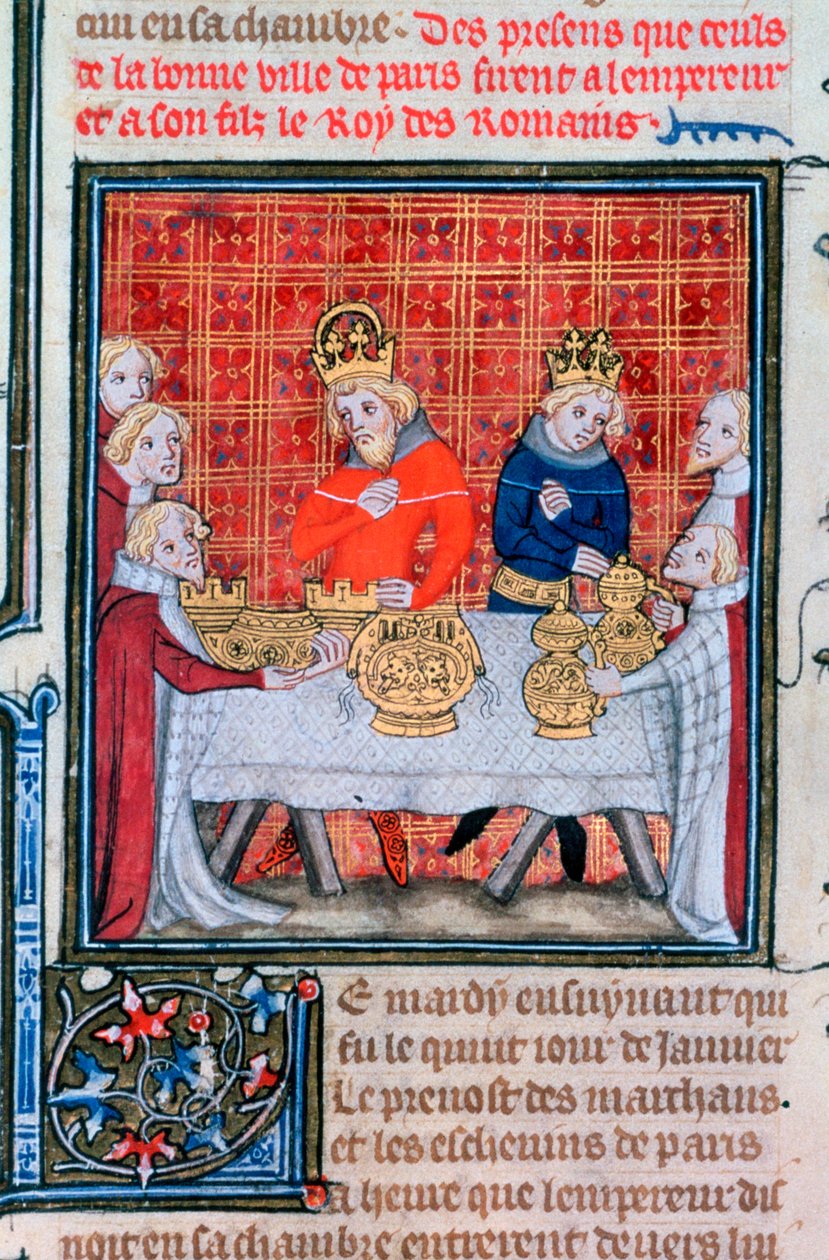 cui en sa chambre. Des presens que ceuls
de la bonne ville de paris firent a lempereur
et a son filz le Roy des Romains.
Le mardy ensuyuant qui
fu le quint iour de Januier
Le preuost des marchans.
et les escheuins de paris
a heure que lempereur dis
noit en sa chambre entrerent deuers lui